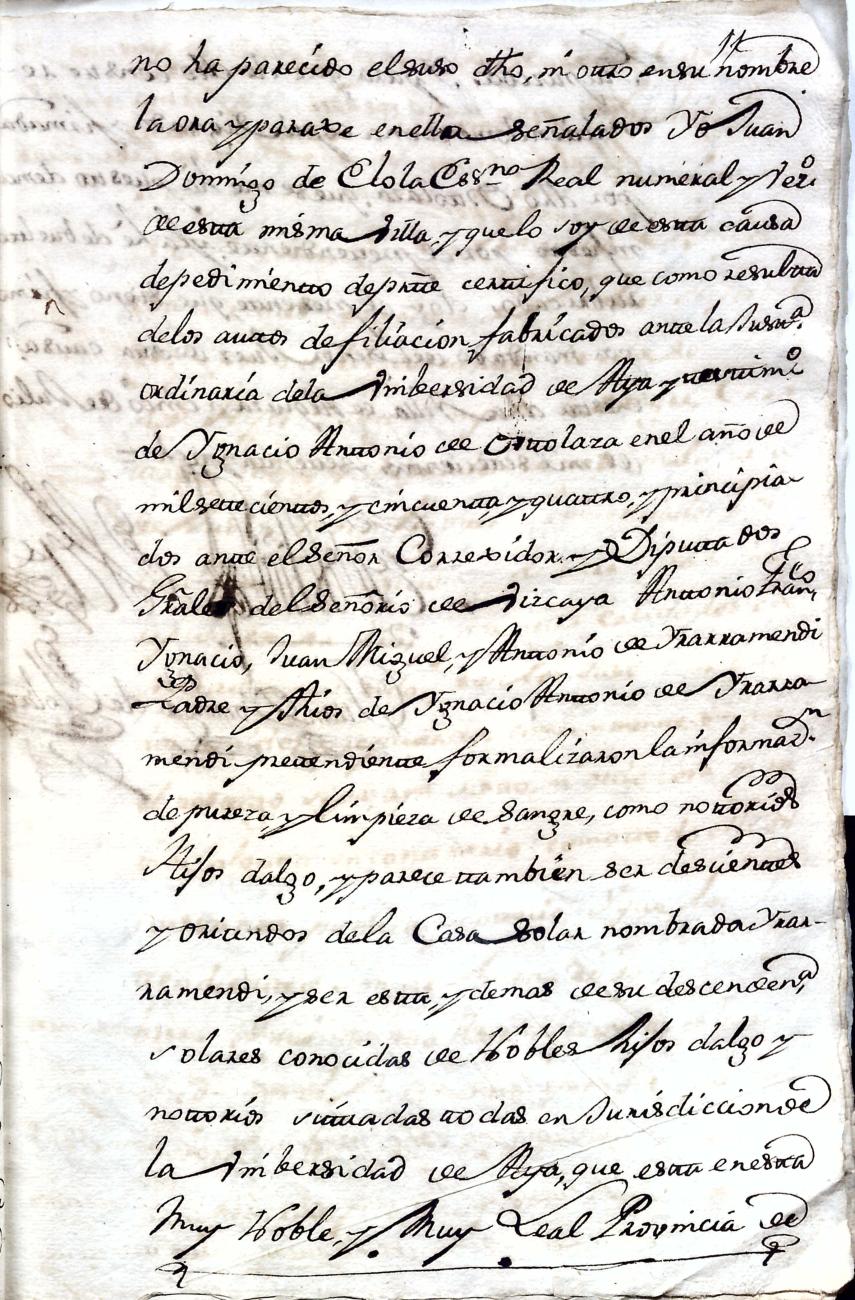 11
no ha parecido el suso dho, ni otro en su nombre
la ora y paraxe en ella señalados Yo Juan
Domingo de Elola Essno Real numeral y Vezo
de esta misma Villa, y que lo soy de esta causa
de pedimiento de prtte certifico, que como resultta
de los auttos de filiacion fabricados ante la Justa
ordinaria de la Vnibersidad de Aya y testimo
de Ygnacio Anttonio de Ottolaza en el año de
mil settecienttos, y cincuentta y quattro, y principia
dos ante el Señor Correxidor y Diputtados
Grales del Señorio de Vizcaya Anttonio Franco,
Ygnacio, Juan Miguel, y Anttonio de Yrarramendi
Padre y Hijos de Ygnacio Anttonio de Yrarra
mendi prettendientte formalizaron la informacn
de pureza, y limpieza de sangre, como nottorios
Hijos dalgo, y parece ttambien ser descienttes
y oriundos de la Casa Solar nombrada Yrar-
ramendi, y ser estta, y demas de su descendena
solares conocidas de Nobles Hijos dalgo y
nottorios sittuadas ttodas en Jurisdiccion de
la Vnibersidad de Aya, que estta en estta
Muy Noble, y Muy Leal Provincia de